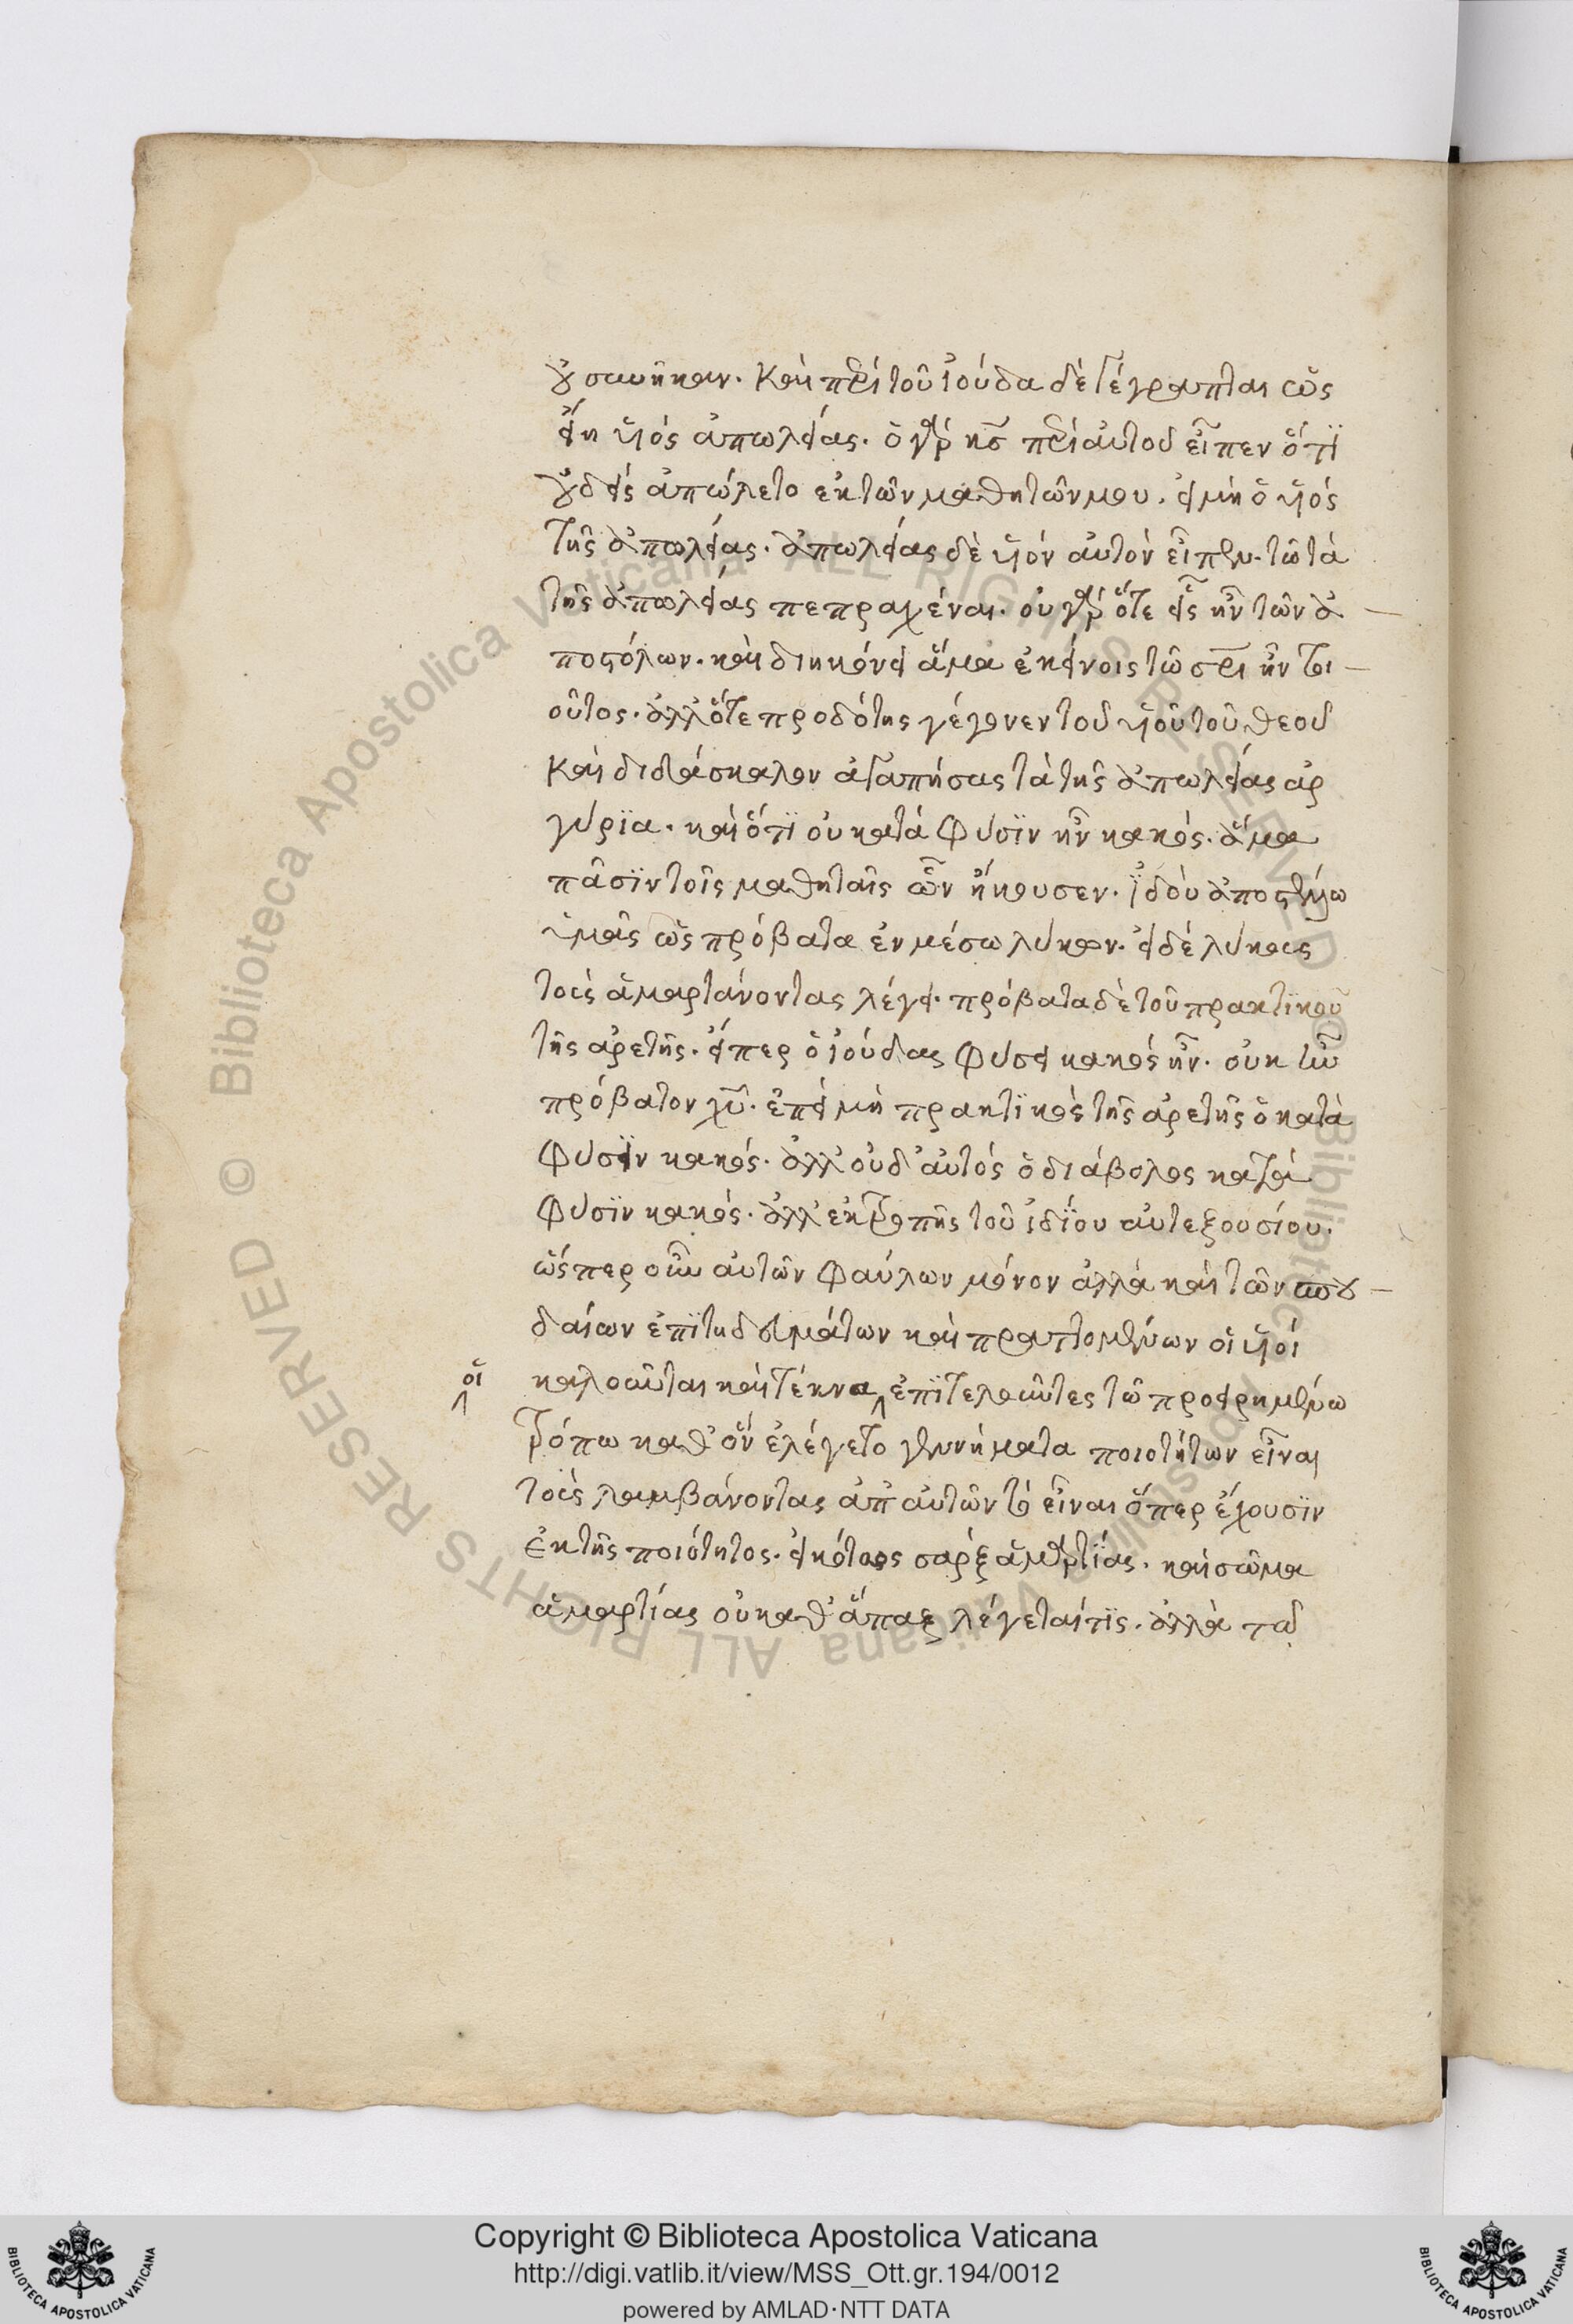 οὐ συνῆκαν. Καὶ περὶ τοῦ ἰούδα δὲ γέγραπται ὡς
εἴη υἱός ἀπωλείας. ὁ γὰρ κ̅ς̅ περὶ αὐτοῦ εἶπεν ὅτϊ
οὐδεὶς ἀπώλετο ἐκ τῶν μαθητῶν μου. εἰ μὴ ὁ υἱὸς
τῆς ἀπωλείας. ἀπωλείας δὲ υἱὸν αὐτὸν εἶπεν. τῶ τὰ
τῆς ἀπωλείας πεπραχέναι. οὐ γὰρ ὅτε εἷς ἦν τῶν ἀ
ποστόλων. καὶ διηκόνει ἅμα ἐκείνοις τῶ σ̅ρ̅ι ἦν τοι
οῦτος. ἀλλ' ὅτε προδότης γέγονεν τοῦ υἱοῦ τοῦ θεοῦ
καὶ διδάσκαλον ἀγαπήσας τὰ τῆς ἀπωλείας ἀρ
γύρϊα. καὶ ὅτϊ οὐ κατὰ φύσϊν ἦν κακός. ἅμα
πᾶσϊν τοῖς μαθηταῖς ὢν ἤκουσεν. ἰδοὺ ἀποστέλλω
ὑμᾶς ὡς πρόβατα ἐν μέσω λύκων. εἰ δὲ λύκους
τοὺς ἁμαρτάνοντας λέγει. πρόβατα δὲ τοῦ πρακτϊκοῦ
τῆς ἀρετῆς. εἴπερ ὁ ἰούδας φύσει κακὸς ἦν. οὐκ ἦν
πρόβατον χ̅υ̅. ἐπεὶ μὴ πρακτϊκὸς τῆς ἀρετῆς ὁ κατὰ
φύσιν κακός. ἀλλ' οὐδ' αὐτὸς ὁ διάβολος κατὰ
φύσϊν κακός. ἀλλ' ἐκ τροπῆς τοῦ ἰδίου αὐτεξουσίου.
ὥσπερ οὖν αὐτῶν φαύλων μόνον ἀλλὰ καὶ τῶν σπου
δαίων ἐπϊτηδευμάτων καὶ πραττομένων οἱ υἱοὶ
οἱ
καλοῦνται καὶ τέκνα ἐπϊτελοῦντες τῶ προειρημένω
τρόπω καθ' ὃν ἐλέγετο γεννήματα ποιοτήτων εἶναι
τοὺς λαμβάνοντας ἀπ' αὐτῶν τὸ εἶναι ὅπερ ἔχουσϊν
ἐκ τῆς ποιότητος. εἰκότως σὰρξ ἁμαρτίας. καὶ σῶμα
ἁμαρτίας οὐ καθ' ἅπαξ λέγεταί τϊς. ἀλλὰ τοῦ
Copyright © Biblioteca Apostolica Vaticana
http://digi.vatlib.it/view/MSS_Ott.gr.194/0012
powered by AMLAD·NTT DATA
BIBLIOTECA APOSTOLICA VATICANA
BIBLIOTECA APOSTOLICA VATICANA
© Biblioteca Apostolica Vaticana ALL RIGHTS RESERVED © Biblioteca Apostolica Vaticana ALL RIGHTS RESERVED